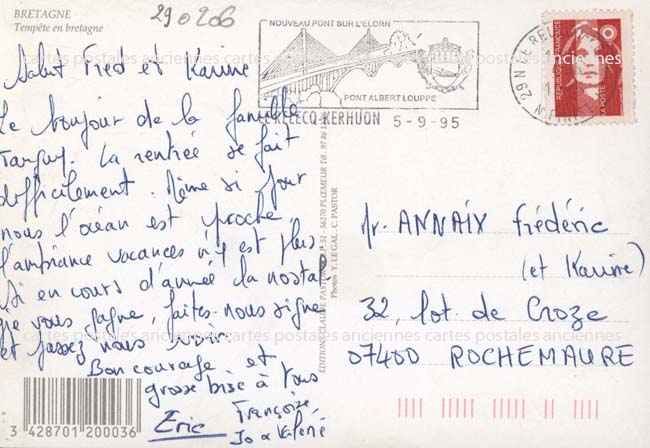 BRETAGNE
Tempête en bretagne
290206
NOUVEAU PONT SUR L'ELORN
PONT ALBERT LOUPPE
LE RELECQ-KERHUON 5-9-95
RÉPUBLIQUE FRANÇAISE
LA POSTE
Salut Fred et Karine.
Le bonjour de la famille
Tanguy. La rentrée se fait
difficilement. Même si pour
nous l'océan est proche,
l'ambiance vacances n'y est plus
Si en cours d'année la nostal-
gie vous gagne, faites-nous signe
et passez nous voir.
Bon courage et
grosse bise à tous
Eric Françoise,
Jo
Mr. ANNAIX Frédéric
(et Karine)
32, lot. de Croze
07400 ROCHEMAURE
Photos Y. LE GAL. C. PASTOR
cartes postales anciennes cartes postales anciennes
3 428701 200036